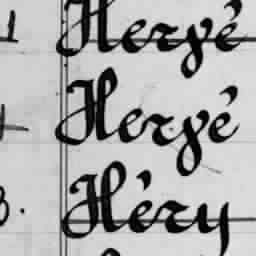 1 Hervé
Hervé
3. Héry